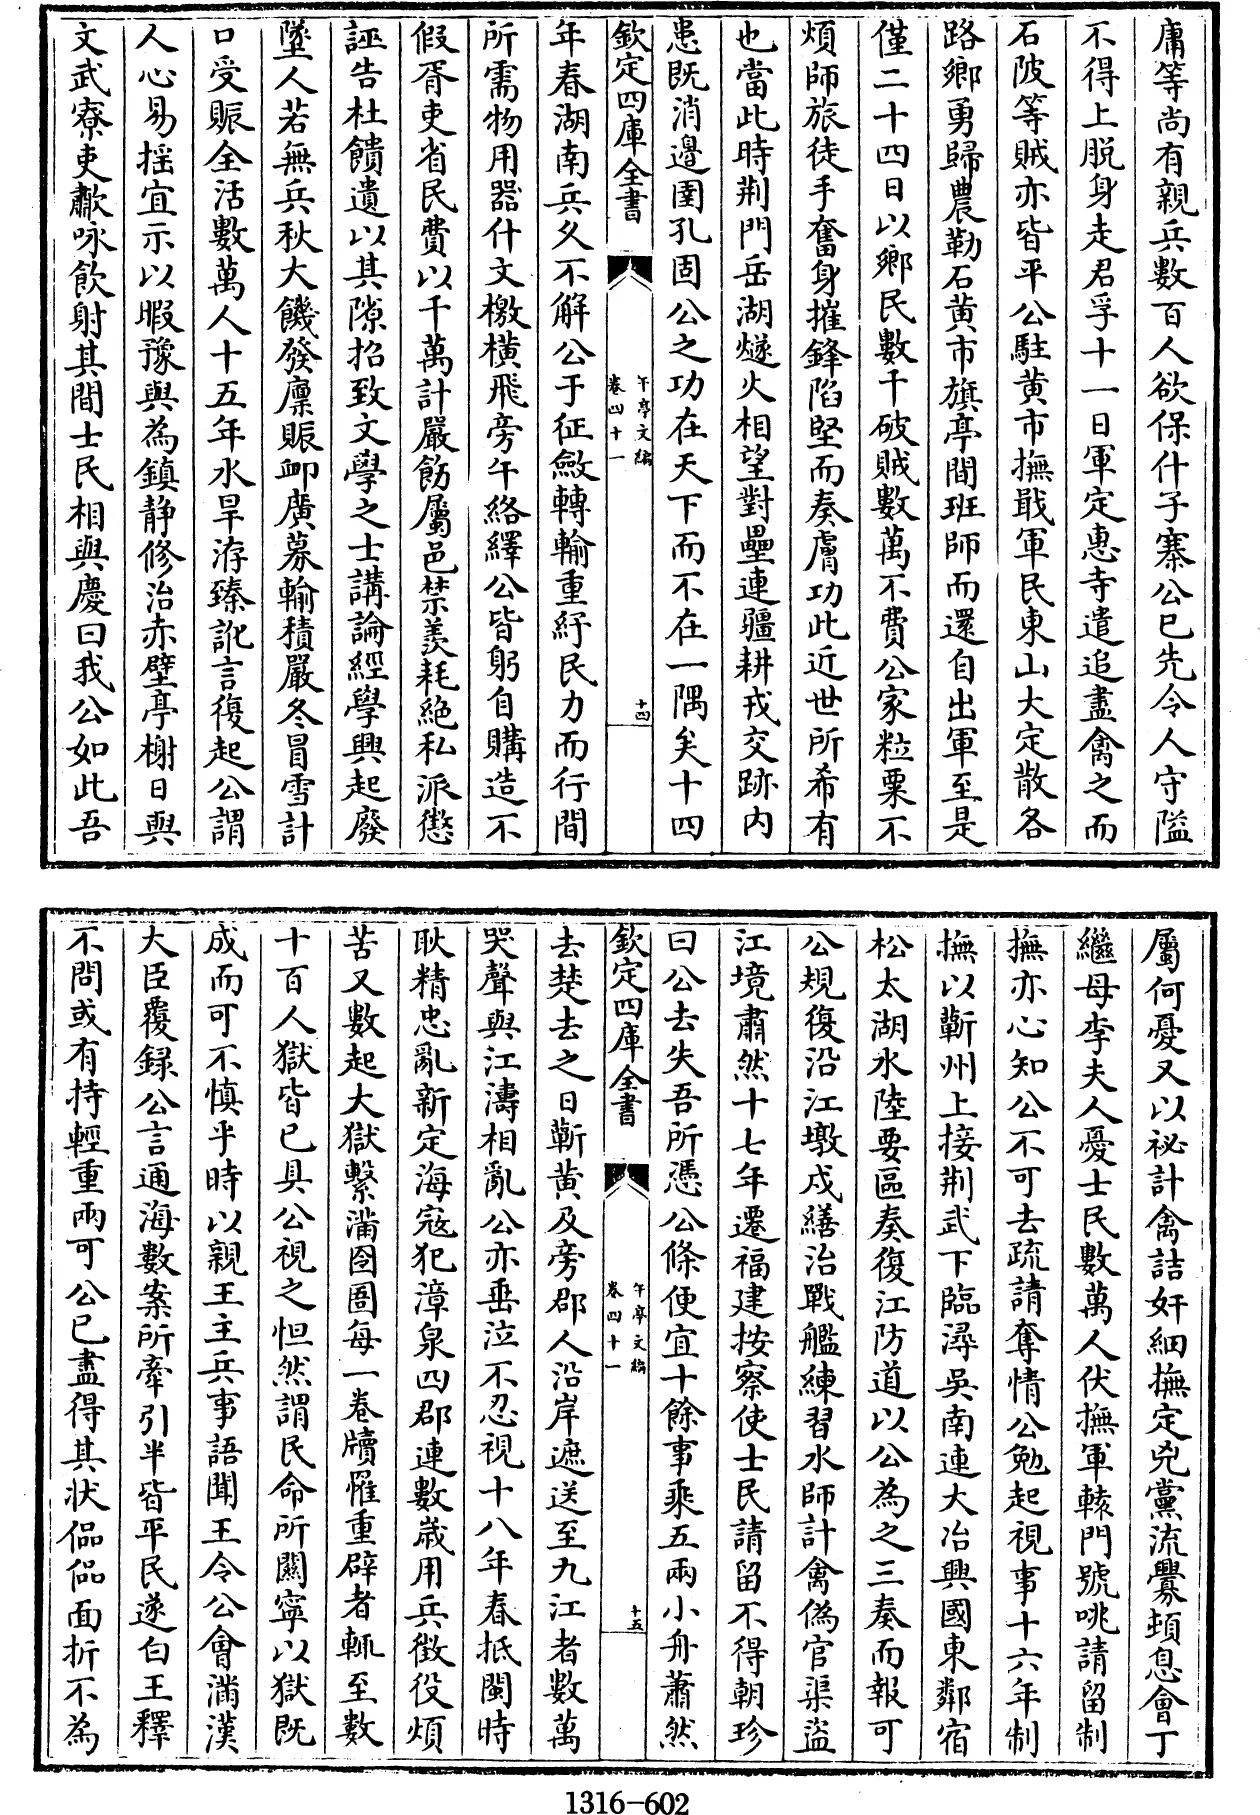 庸等尚有親兵數百人欲保什子寨公已先令人守隘
不得上脱身走君孚十一日軍定惠寺遣追盡禽之而
石陂等賊亦皆平公駐黄市撫戢軍民東山大定散各
路鄉勇歸農勒石黄市旗亭間班師而還自出軍至是
僅二十四日以鄉民數千破賊數萬不費公家粒粟不
煩師旅徒手奮身摧鋒陷堅而奏膚功此近世所希有
也當此時荆門岳湖燧火相望對壘連疆耕戎交跡内
患既消邊圉孔固公之功在天下而不在一隅矣十四
欽定四庫全書
午亭文編
卷四十一
十四
年春湖南兵久不解公于征斂轉輸重紓民力而行間
所需物用器什文檄横飛旁午絡繹公皆躬自購造不
假胥吏省民費以千萬計嚴飭屬邑禁羡耗絶私派懲
誣告杜饋遺以其隙招致文學之士講論經學興起廢
墜人若無兵秋大饑發廪賑卹廣募輸積嚴冬冒雪計
口受賑全活數萬人十五年水旱洊臻訛言復起公謂
人心易揺宜示以暇豫與為鎮静修治赤壁亭榭日與
文武寮吏歗咏飲射其間士民相與慶曰我公如此吾
屬何憂又以祕計禽詰奸細撫定兇黨流釁頓息會丁
繼母李夫人憂士民數萬人伏撫軍轅門號咷請留制
撫亦心知公不可去疏請奪情公勉起視事十六年制
撫以蘄州上接荆武下臨潯吳南連大冶興國東鄰宿
松太湖水陸要區奏復江防道以公為之三奏而報可
公規復沿江墩戍繕治戰艦練習水師計禽偽官渠盜
江境肅然十七年遷福建按察使士民請留不得朝珍
曰公去失吾所憑公條便宜十餘事乘五兩小舟蕭然
欽定四庫全書
午亭文編
卷四十一
十五
去楚去之日蘄黄及旁郡人沿岸遮送至九江者數萬
哭聲與江濤相亂公亦垂泣不忍視十八年春抵閩時
耿精忠亂新定海寇犯漳泉四郡連數嵗用兵徴役煩
苦又數起大獄繫滿囹圄每一卷牘罹重辟者輒至數
十百人獄皆已具公視之怛然謂民命所關寧以獄既
成而可不慎乎時以親王主兵事語聞王令公會滿漢
大臣覆録公言通海數案所牽引半皆平民遂白王釋
不問或有持輕重兩可公已盡得其状偘偘面折不為
1316-602